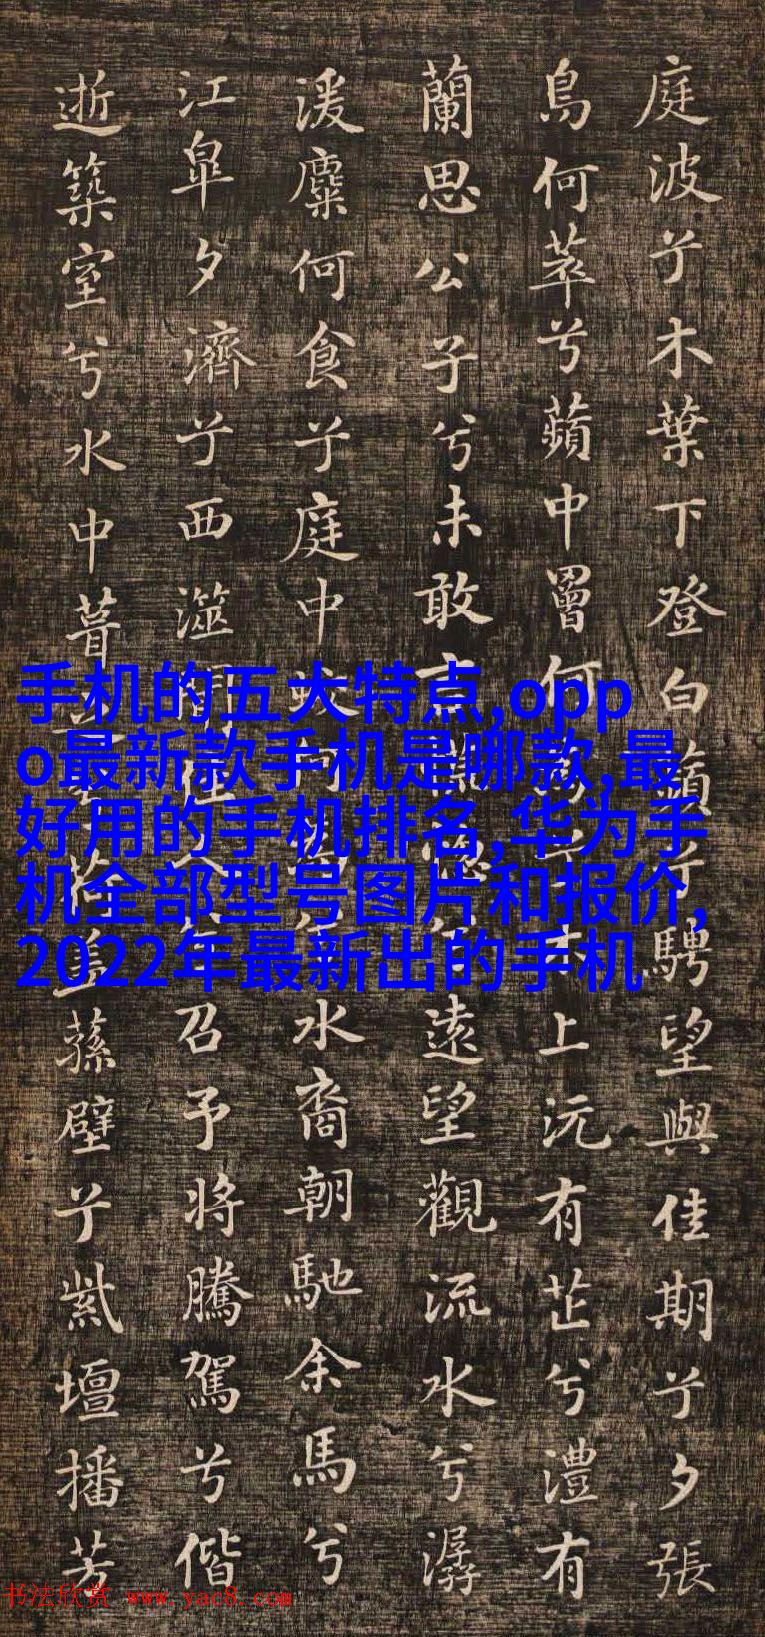 庭波兮木葉下登白蘋兮騁望與佳期兮夕張
鳥何萃兮蘋中罾何上沅有芷兮澧有
蘭思公子兮未敢言遠望觀流水兮潺
湲麋何食兮庭中蛟水裔朝馳余馬兮
江皋夕濟兮西澨佳人兮召予將騰駕兮偕
逝築室兮水中葺荷蓋蓀壁兮紫壇播芳
手机的五大特点,opp
o最新款手机是哪款,最
好用的手机排名,华为手
机全部型号图片和报价,
2022年最新出的手机
书法欣赏 www.yac8.com